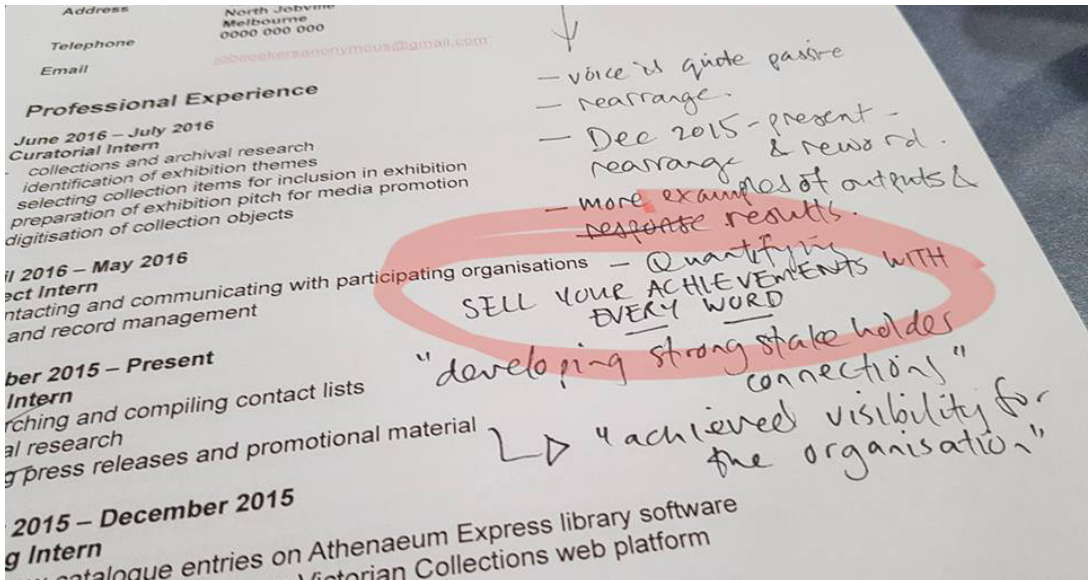 Address
North Jobville
Melbourne
Telephone
0000 000 000
Email
jobseekersanonymous@gmail.com
Professional Experience
June 2016 – July 2016
Curatorial Intern
- collections and archival research
identification of exhibition themes
selecting collection items for inclusion in exhibition
preparation of exhibition pitch for media promotion
digitisation of collection objects
2016 – May 2016
Intern
and communicating with participating organisations
and record management
2015 – Present
Intern
and compiling contact lists
research
press releases and promotional material
2015 – December 2015
Intern
catalogue entries on Athenaeum Express library software
Victorian Collections web platform
- voice is quite passive
- rearrange.
- Dec 2015 - present -
rearrange & reword.
- more examples of outputs &
response results.
- Quantifying
SELL YOUR ACHIEVEMENTS WITH
EVERY WORD
"developing strong stakeholder
connections"
"achieved visibility for
the organisation"